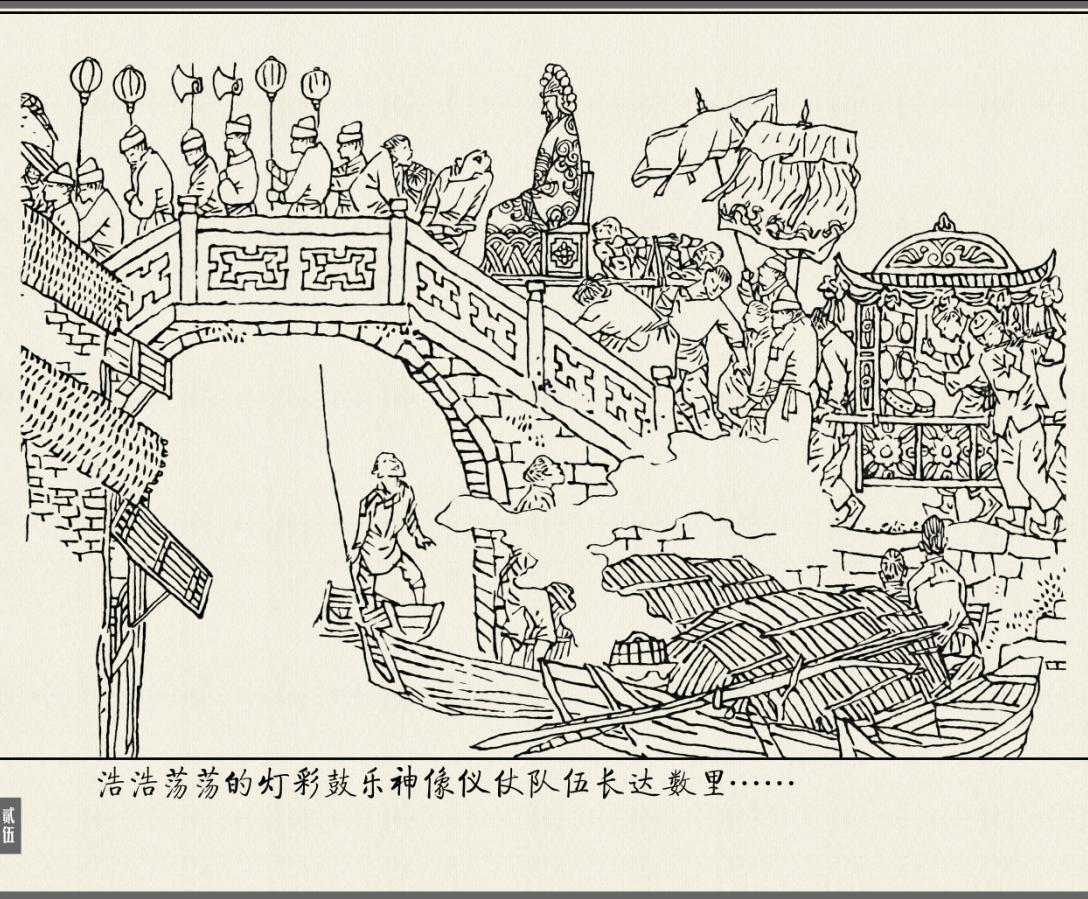 浩浩荡荡的灯彩鼓乐神像仪仗队伍长达数里……
贰伍